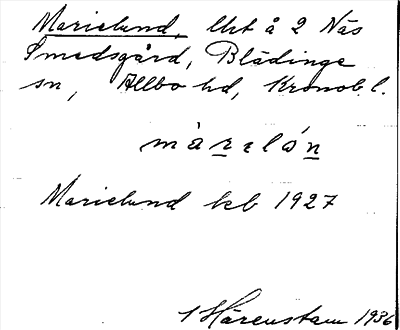 Marielund, lht å 2 Näs
Smedsgård, Blädinge
sn, Allbo hd, Kronob. l.
màrelón
Marielund kb 1927
Härenstam 1936